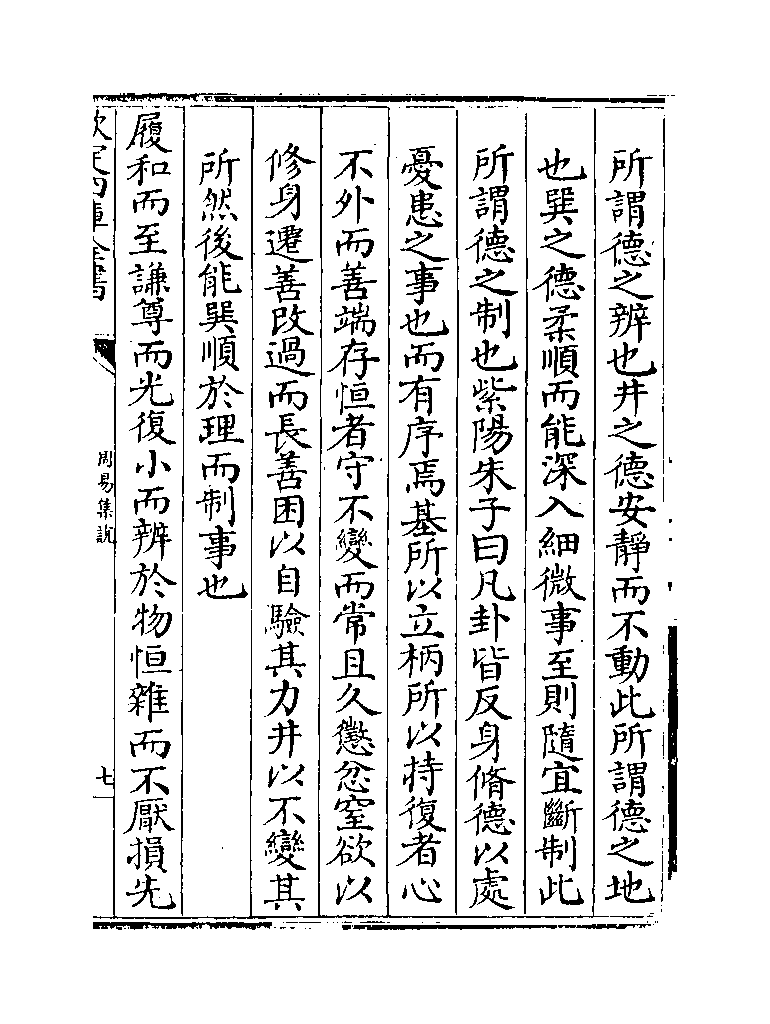 所謂德之辨也井之德安靜而不動此所謂德之地
也巽之德柔順而能深入細微事至則隨宜斷制此
所謂德之制也紫陽朱子曰凡卦皆反身脩德以處
憂患之事也而有序焉基所以立柄所以持復者心
不外而善端存恒者守不變而常且久懲忿窒欲以
修身遷善改過而長善困以自驗其力井以不變其
所然後能巽順於理而制事也
履和而至謙尊而光復小而辨於物恒雜而不厭損先
欽定四庫全書
周易集說
七